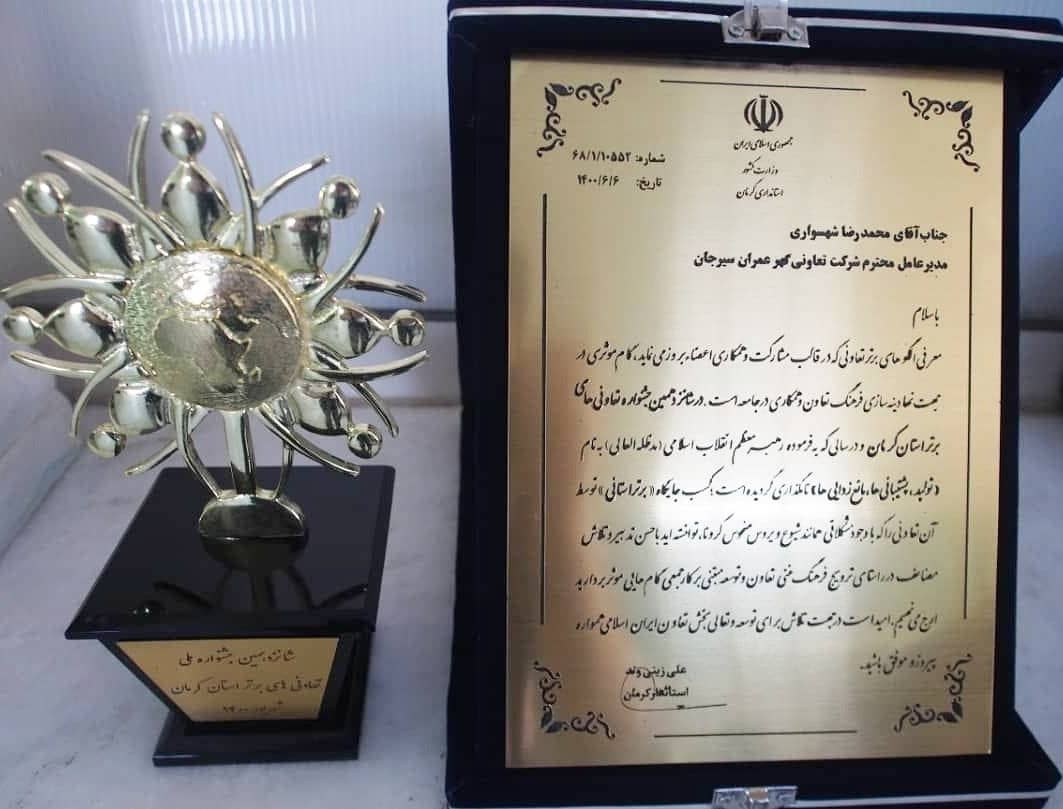 جمهوری اسلامی ایران
وزارت کشور
استانداری کرمان
شماره: ۶۸/۱/۱۰۵۵۲
تاریخ: ۱۴۰۰/۶/۶
جناب آقای محمدرضا شهسواری
مدیرعامل محترم شرکت تعاونی گهر عمران سیرجان
باسلام
معرفی الگوهای برتر تعاونی که در قالب مشارکت و همکاری اعضاء، بروز می نماید، گام موثری در
جهت نهادینه سازی فرهنگ تعاون و همکاری در جامعه است. در شانزدهمین جشنواره تعاونی های
برتر استان کرمان و در سالی که به فرموده رهبر معظم انقلاب اسلامی (مدظله العالی) به نام
«تولید، پشتیبانی ها، مانع زدایی ها» نامگذاری گردیده است؛ کسب جایگاه «برتر استانی» توسط
آن تعاونی را که با وجود مشکلاتی همانند شیوع ویروس منحوس کرونا، توانسته اید با حسن تدبیر و تلاش
مضاعف در راستای ترویج فرهنگ غنی تعاون و توسعه مبتنی بر کار جمعی گام هایی موثر بردارید
ارج می نهیم. امید است در جهت تلاش برای توسعه و تعالی بخش تعاون ایران اسلامی همواره
پیروز و موفق باشید.
علی زینی وند
استاندار کرمان
شانزدهمین جشنواره ملی
تعاونی های برتر استان کرمان
شهریور ۱۴۰۰